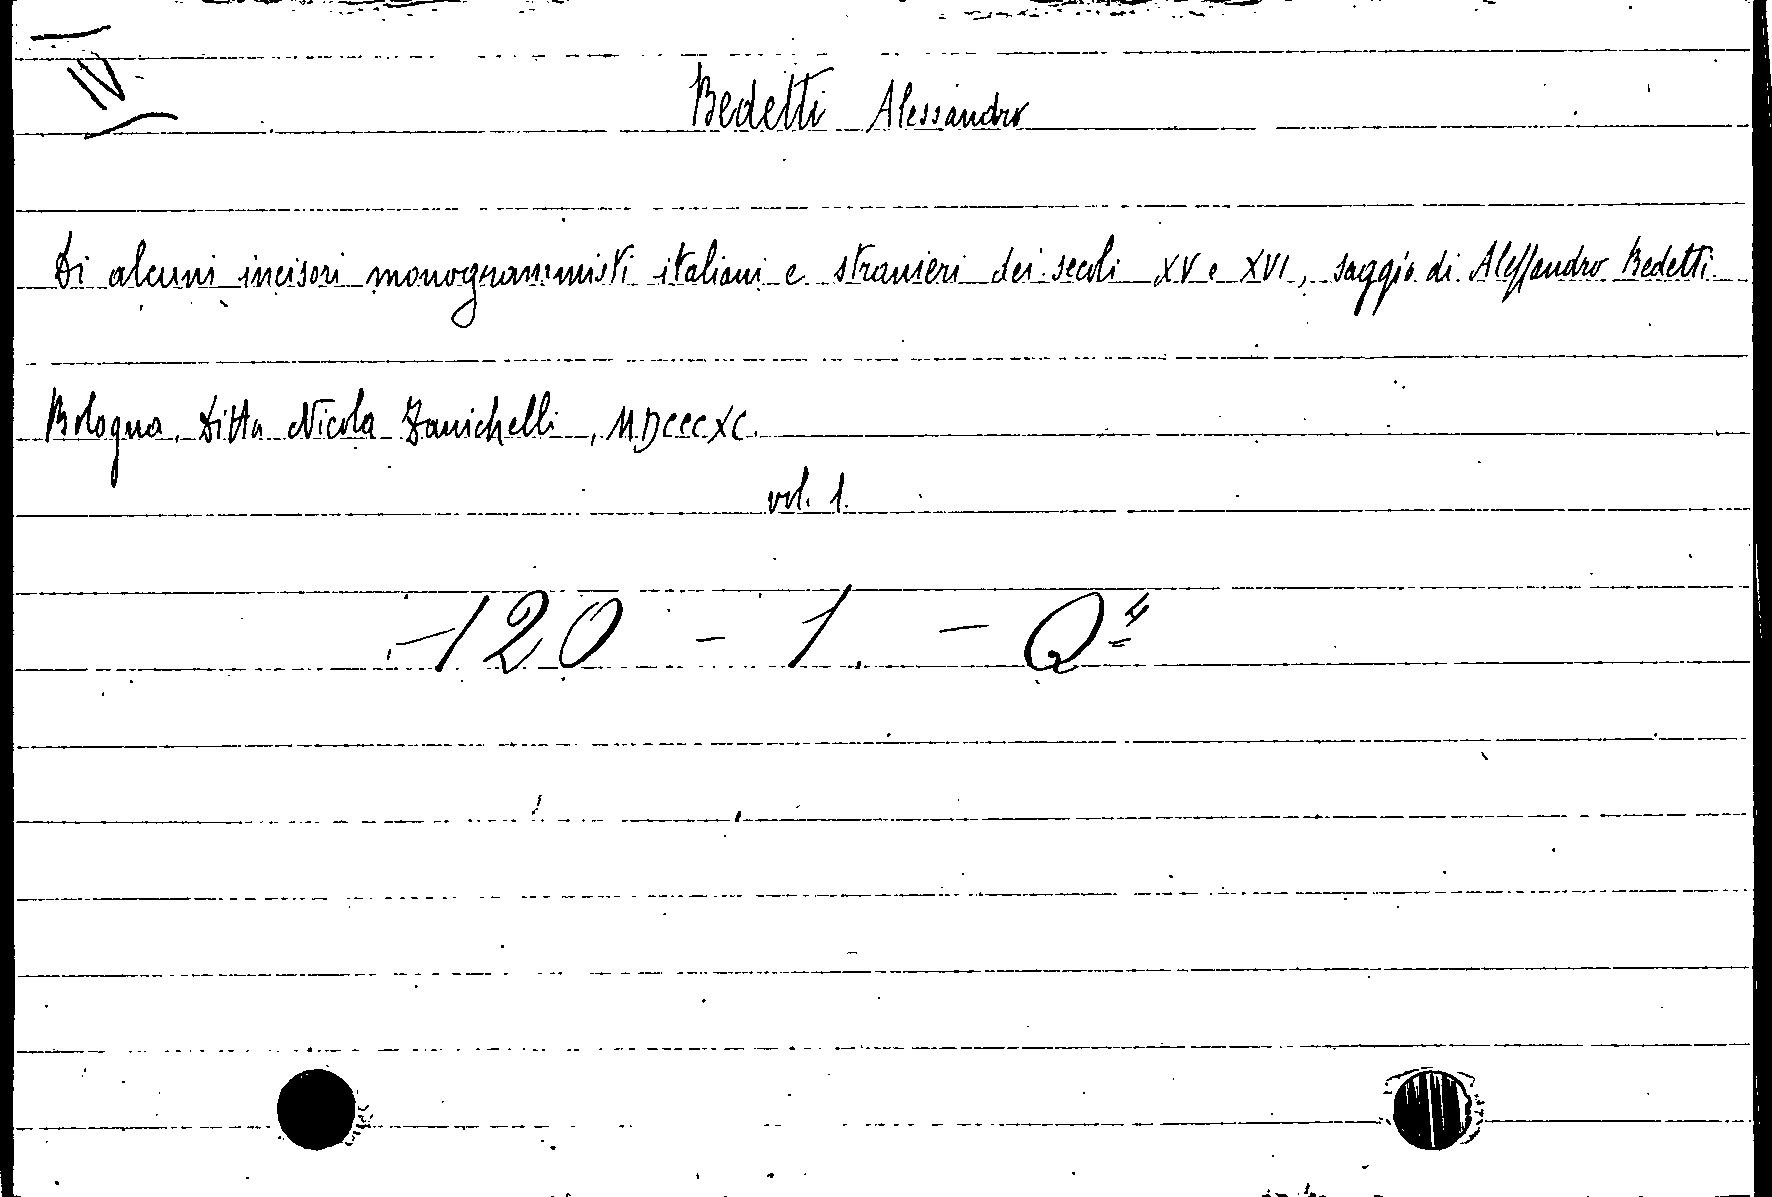 IV
Bedetti Alessandro
Di alcuni incisori monogrammisti italiani e stranieri dei secoli XV e XVI, saggio di Alessandro Bedetti.
Bologna, Ditta Nicola Zanichelli, MDCCCXC.
vol. 1.
120 - 1. - Q